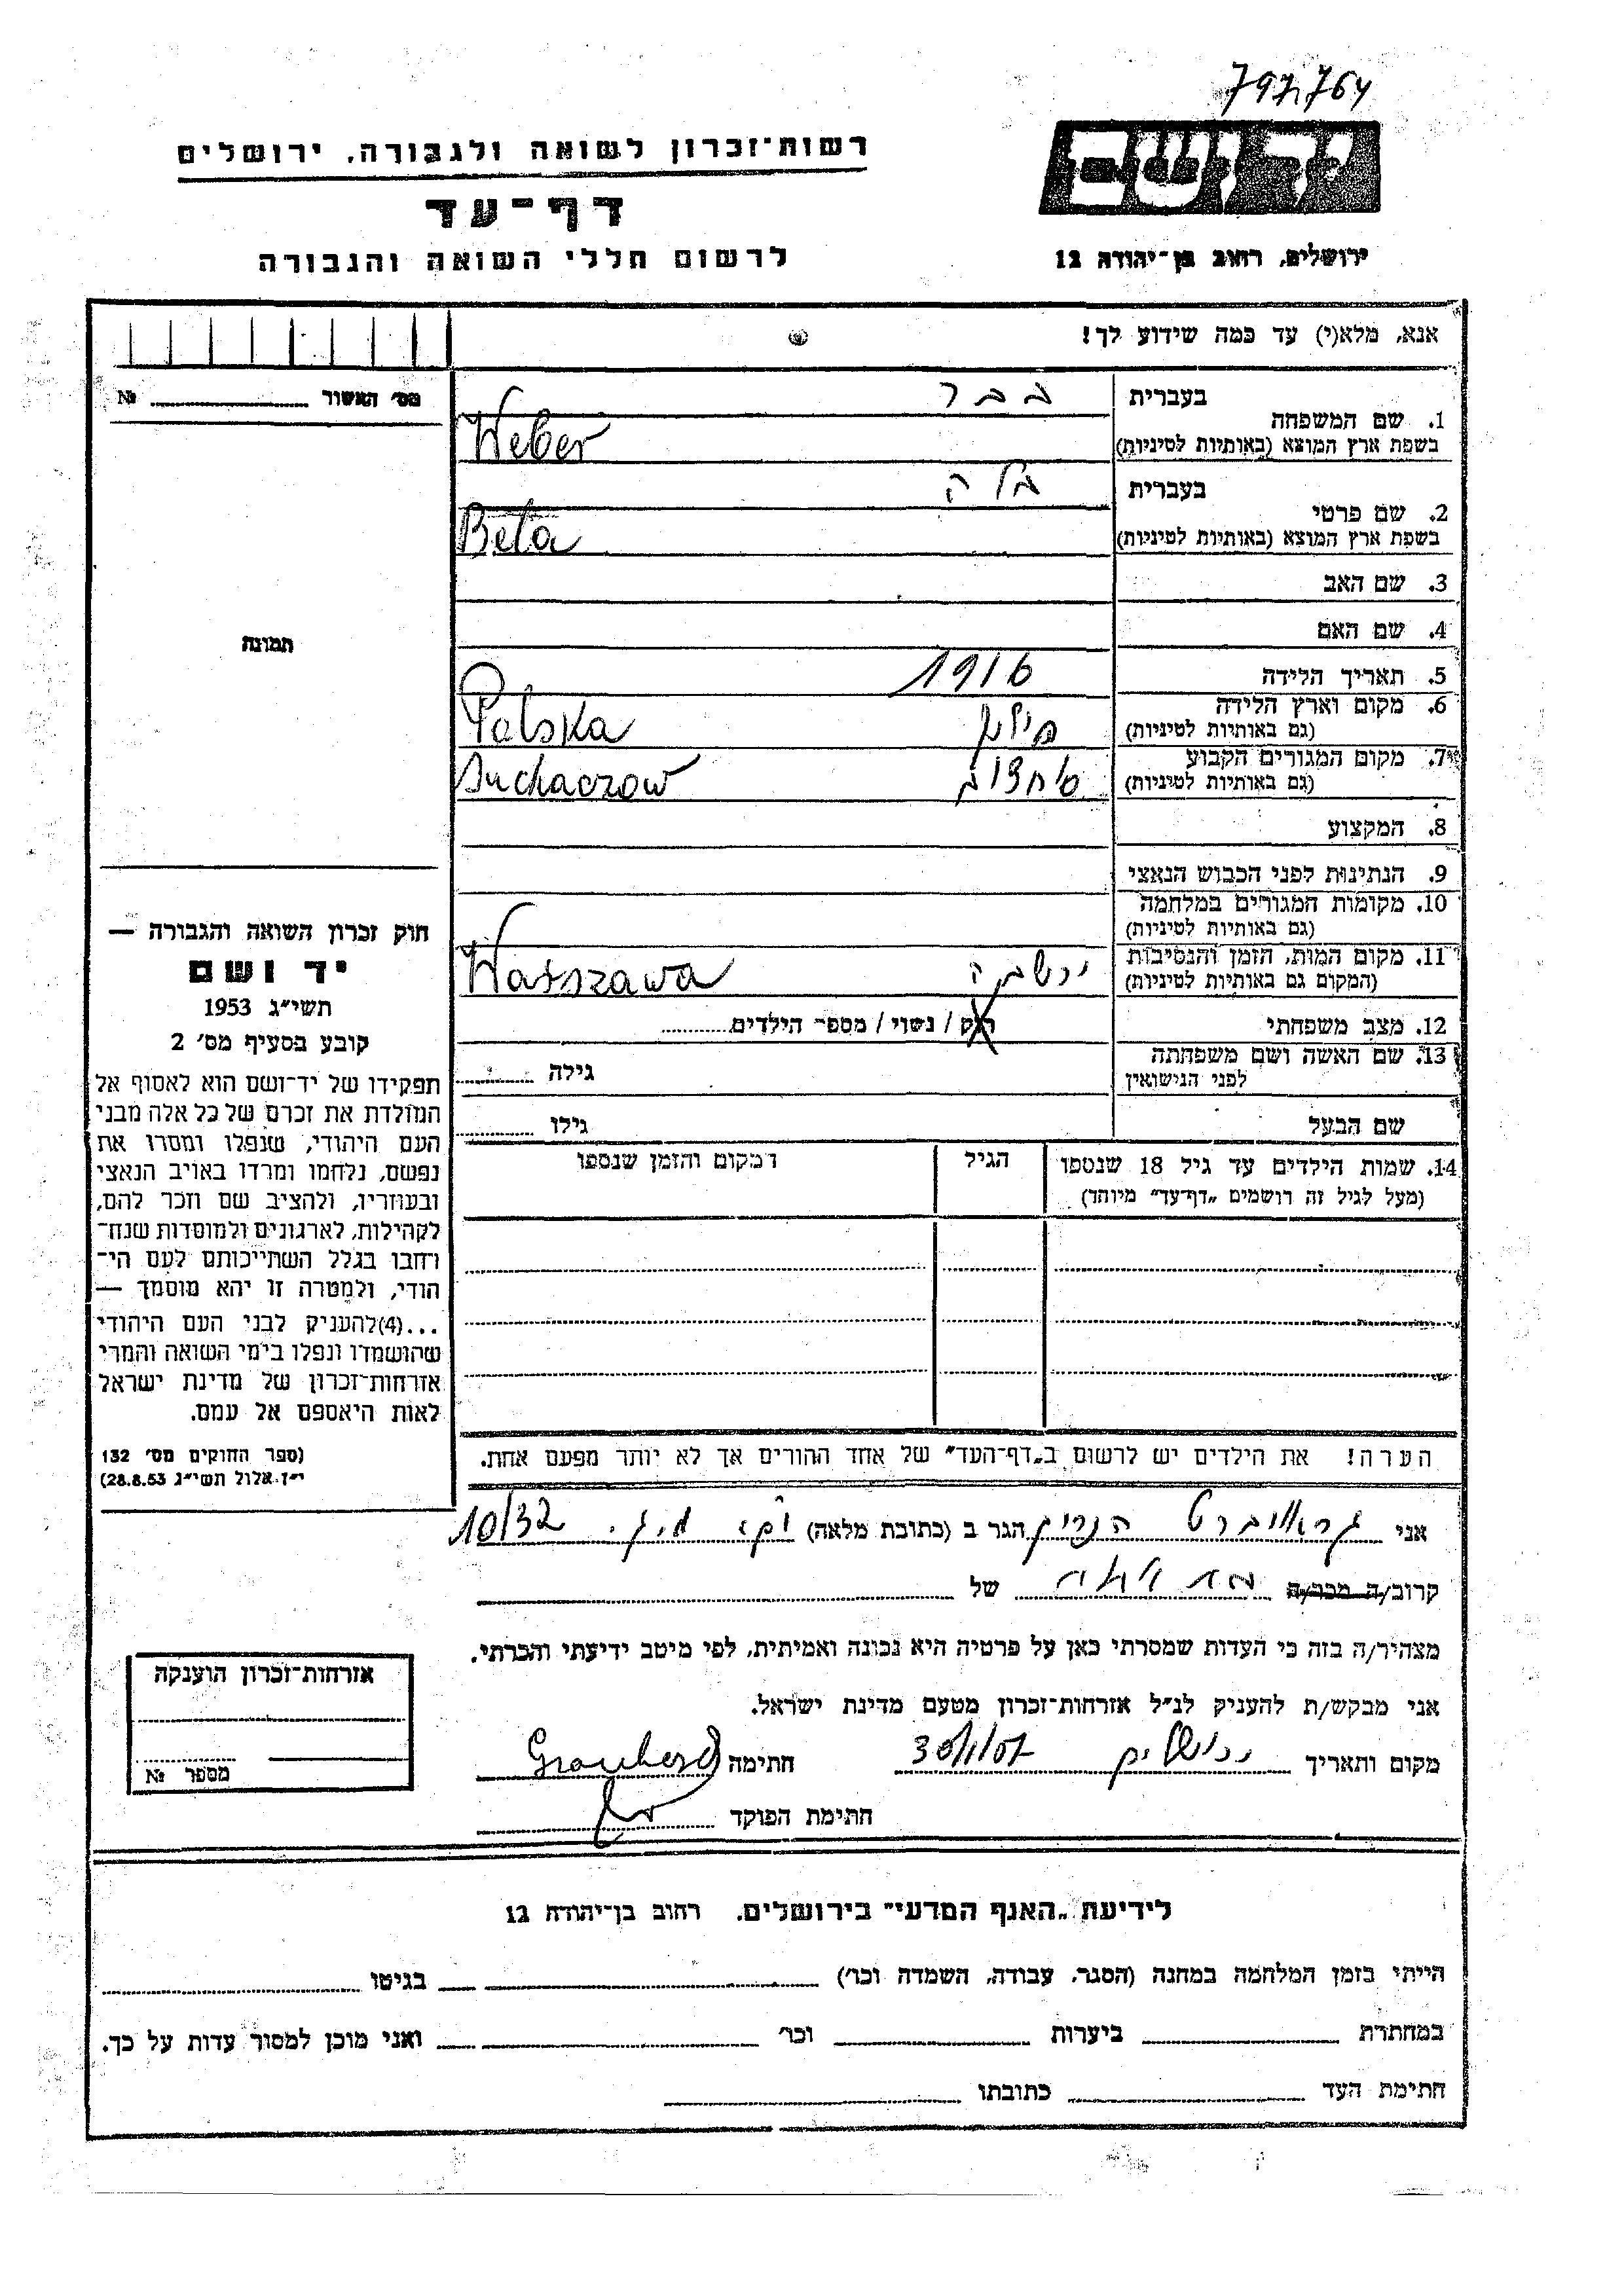 797,764
ידושם
רשות־זכרון לשואה ולגבורה, ירושלים
דף־עד
לרשום חללי השואה והגבורה
ירושלים, רחוב בן־יהודה 12
אנא, מלא(י) עד כמה שידוע לך!
מס׳ האשור № 
1. שם המשפחה בעברית ובר
בשפת ארץ המוצא (באותיות לטיניות) Weber
2. שם פרטי בעברית בלה
בשפת ארץ המוצא (באותיות לטיניות) Bela
3. שם האב
4. שם האם
תמונה
5. תאריך הלידה 1916
6. מקום וארץ הלידה
(גם באותיות לטיניות) פולין Polska
7. מקום המגורים הקבוע
(גם באותיות לטיניות) Suchaczow
8. המקצוע
9. הנתינות לפני הכבוש הנאצי
10. מקומות המגורים במלחמה
(גם באותיות לטיניות)
11. מקום המות, הזמן והנסיבות
(המקום גם באותיות לטיניות) ורשבה Warszawa
12. מצב משפחתי רוק / נשוי / מספר הילדים
13. שם האשה ושם משפחתה
לפני הנישואין גילה
שם הבעל גילו
14. שמות הילדים עד גיל 18 שנספו הגיל המקום והזמן שנספו
(מעל לגיל זה רושמים „דף־עד” מיוחד)
חוק זכרון השואה והגבורה —
יד ושם
תשי״ג 1953
קובע בסעיף מס׳ 2
תפקידו של יד־ושם הוא לאסוף אל
המולדת את זכרם של כל אלה מבני
העם היהודי, שנפלו ומסרו את
נפשם, נלחמו ומרדו באויב הנאצי
ובעוזריו, ולהציב שם וזכר להם,
לקהילות, לארגונים ולמוסדות שנח־
רחבו בגלל השתייכותם לעם הי־
הודי, ולמטרה זו יהא מוסמך —
...(4)להעניק לבני העם היהודי
שהושמדו ונפלו בימי השואה והמרי
אזרחות־זכרון של מדינת ישראל
לאות היאספם אל עמם.
(ספר החוקים מס׳ 132
י״ז אלול תשי״ג 28.8.53)
הערה! את הילדים יש לרשום ב„דף־העד” של אחד ההורים אך לא יותר מפעם אחת.
אני הגר ב (כתובת מלאה) 10/32
קרוב/ה מכר/ה של
מצהיר/ה בזה כי העדות שמסרתי כאן על פרטיה היא נכונה ואמיתית, לפי מיטב ידיעתי והכרתי.
אני מבקש/ת להעניק לנ״ל אזרחות־זכרון מטעם מדינת ישראל.
מקום ותאריך ירושלים חתימה
חתימת הפוקד
אזרחות־זכרון הוענקה
מספר №
לידיעת „האגף המדעי” בירושלים, רחוב בן־יהודה 12
הייתי בזמן המלחמה במחנה (הסגר, עבודה, השמדה וכו׳) בגיטו
במחתרת ביערות וכו׳ ואני מוכן למסור עדות על כך.
חתימת העד כתובתו